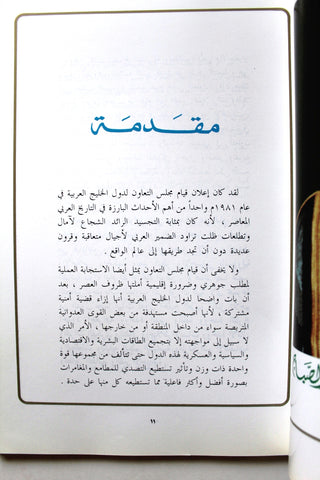 مقدمة
لقد كان إعلان قيام مجلس التعاون لدول الخليج العربية في
عام ١٩٨١م واحداً من أهم الأحداث البارزة في التاريخ العربي
المعاصر ، لأنه كان بمثابة التجسيد الرائد الشجاع لآمال
وتطلعات ظلت تراود الضمير العربي لأجيال متعاقبة وقرون
عديدة دون أن تجد طريقها إلى عالم الواقع .
ولا يخفى أن قيام مجلس التعاون يمثل أيضا الاستجابة العملية
لمطلب جوهري وضرورة إقليمية أملتها ظروف العصر ، بعد
أن بات واضحا لدول الخليج العربية أنها إزاء قضية أمنية
مشتركة ، لأنها أصبحت مستهدفة من بعض القوى العدوانية
المتربصة سواء من داخل المنطقة أو من خارجها ، الأمر الذي
لا سبيل إلى مواجهته إلا بتجميع الطاقات البشرية والاقتصادية
والسياسية والعسكرية لهذه الدول حتى تتألف من مجموعها قوة
واحدة ذات وزن وتأثير تستطيع التصدي للمطامع والمغامرات
بصورة أفضل وأكثر فاعلية مما تستطيعه كل منها على حدة .
١١